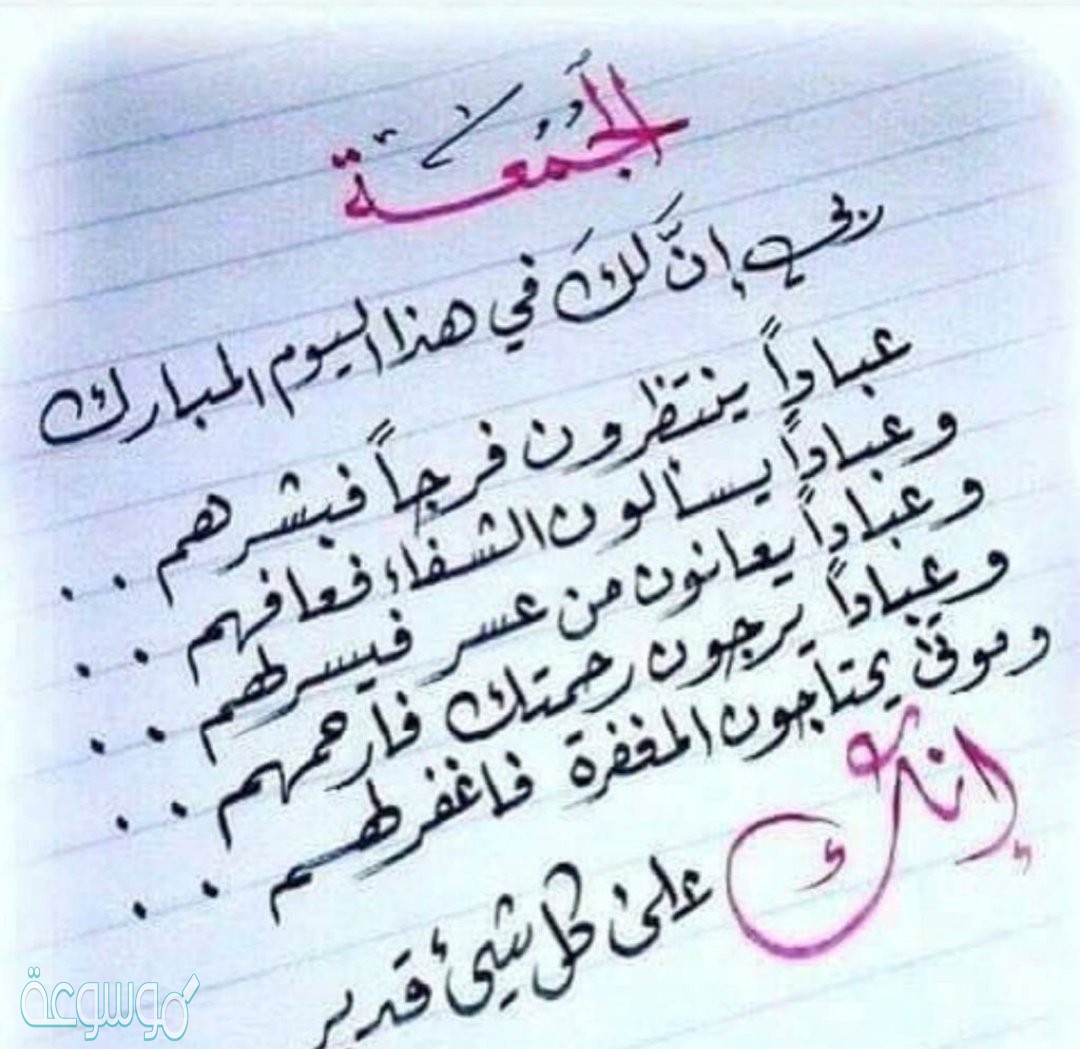 الجُمُعة
ربي إنَّ لكَ في هذا اليوم المبارك
عباداً ينتظرون فرجاً فبشرهم . .
وعباداً يسألون الشفاء فعافهم . .
وعباداً يعانون من عسر فيسر لهم . .
وعباداً يرجون رحمتك فارحمهم . .
وموتى يحتاجون المغفرة فاغفر لهم . .
إنك على كل شيئ قدير
موسوعة